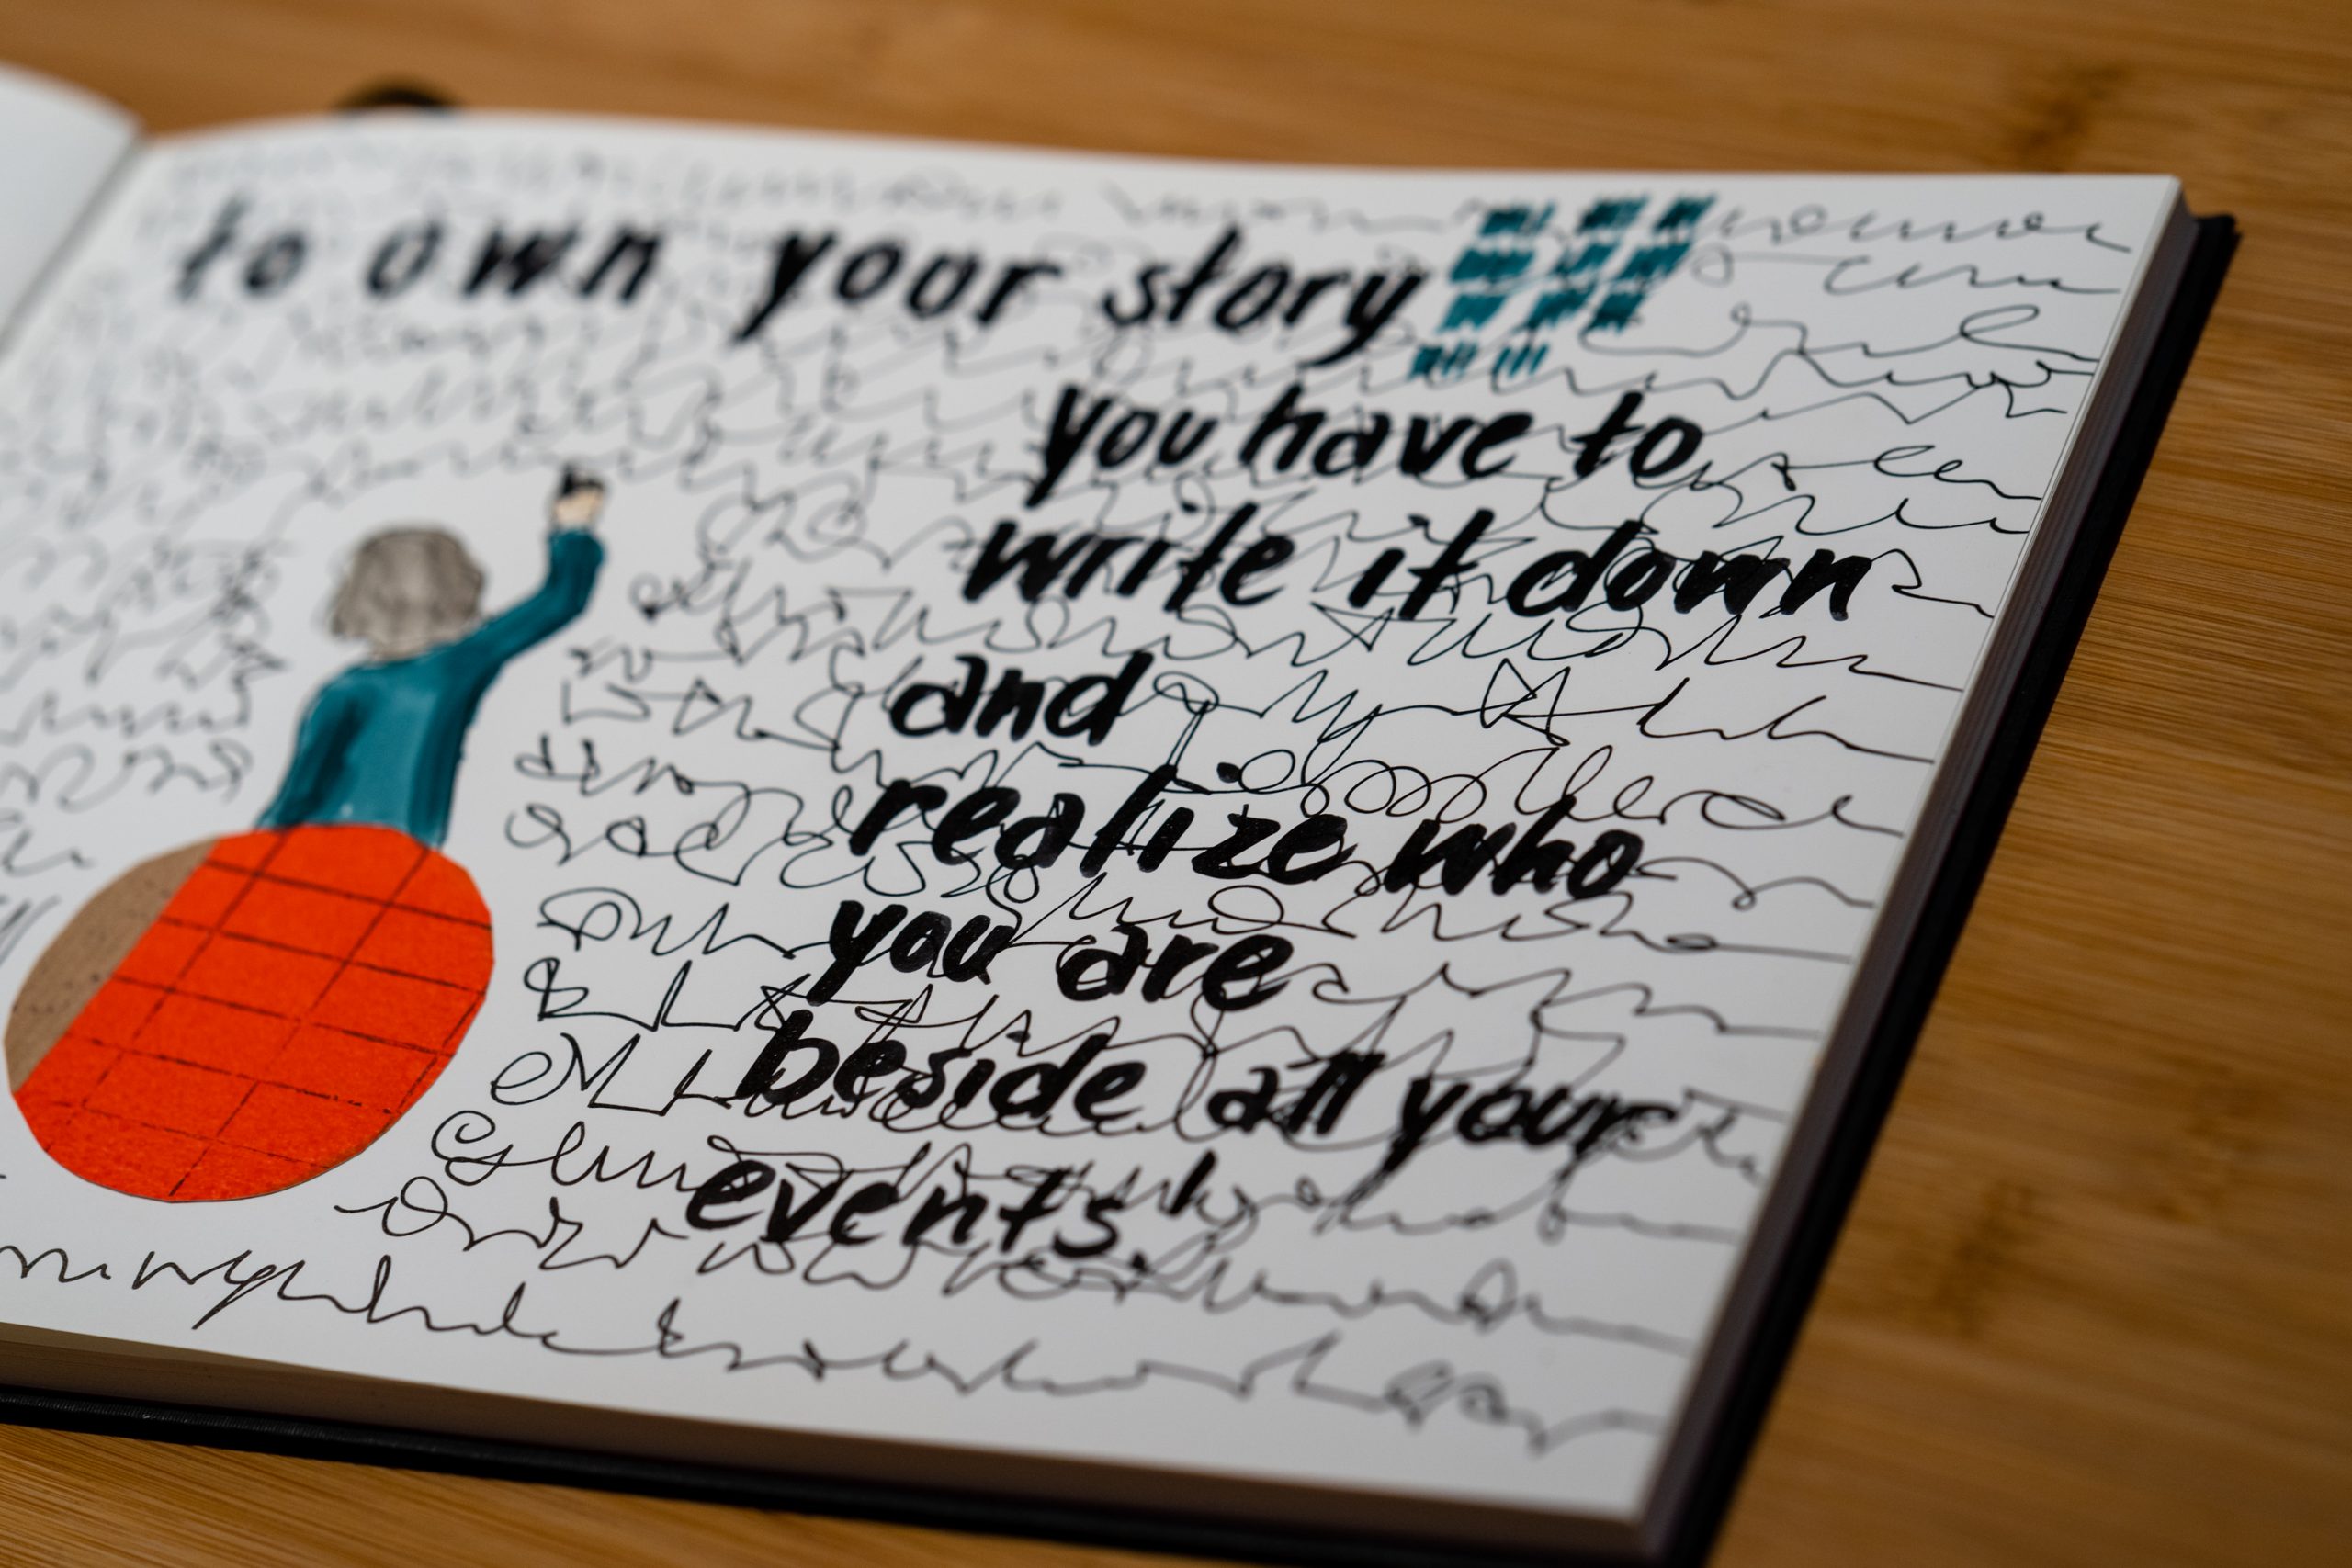 to own your story
you have to
write it down
and
realize who
you are
beside all your
events.